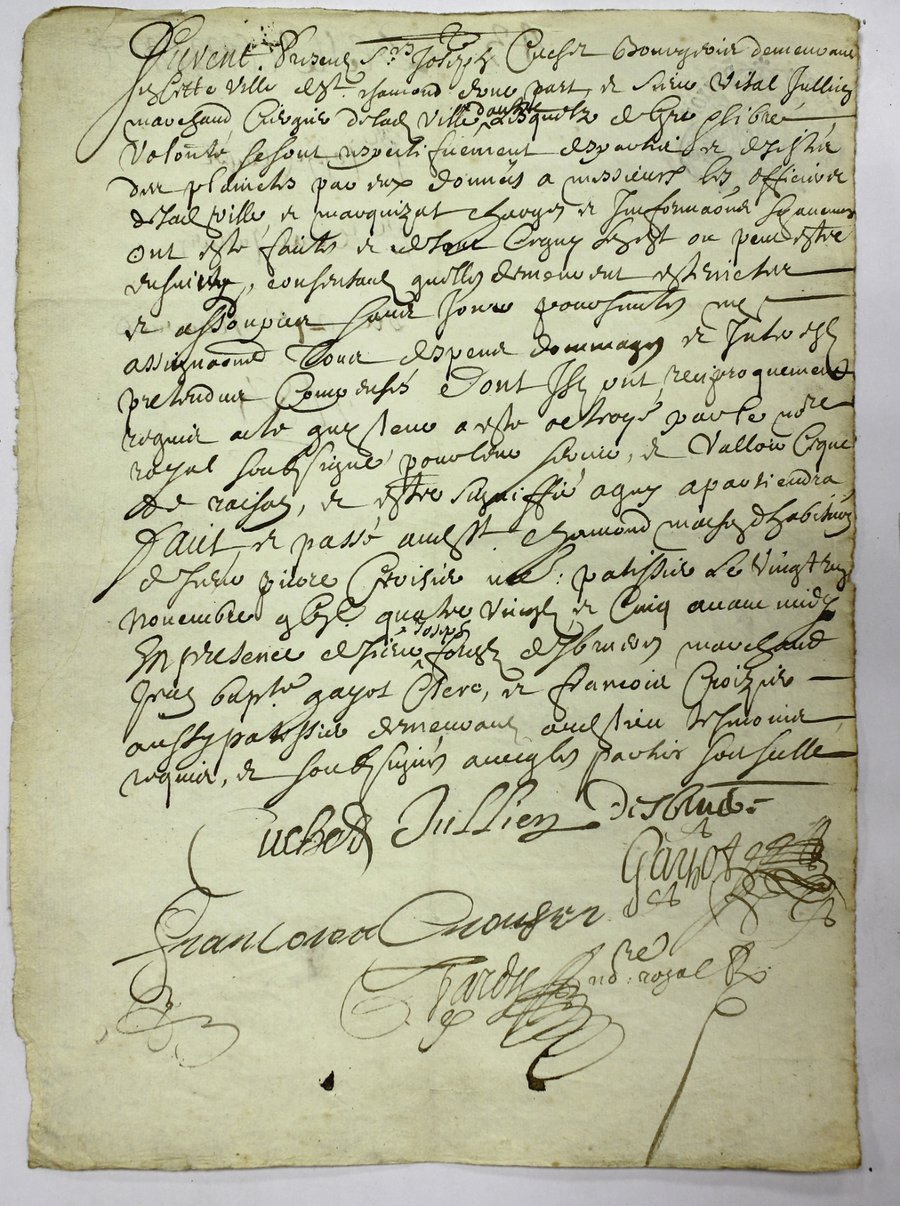 Furent Presens Srs Joseph Cuchet Bourgeois demeurant
en cette ville de St chamond d'une part et sieur Vital Jullien
marchand Ciergier de lad ville d'autre lesquels de gre & libre
Volonté se sont respectivement despartis et desistés
des plaintes par eux données a messieurs les officiers
de lad ville et marquizat charges et Informaons sy aucunes
ont esté faites et de tout ce quy s'en est ou peut estre
ensuivy, consentant quelles demeurent esteinctes
et assoupies sans Jours poursuites ne
assignaons Tous despens dommages et Interests
pretendus Compensés Dont Ilz ont reciproquement
requis acte quy leur a esté octroyé par le nore
royal soubsigné pour leur servir, et Valloir ce que
de raison, et estre signiffié a quy apartiendra
Fait et passé aud St Chamond maison d'habitaon
de sieur pierre Croisier me patissier Le Vingt
novembre gbjc quatre Vingt et Cinq avant midy
En presence de sieur Joseph desbruieres marchand
Jean bapte gayot Clerc, et francois Croizier
aussy patissier demeurant aud lieu tesmoins
requis, et soubsignés avec les parties
Cuchet Jullien Desbru
Gayot
Francois Crousier
Tardy nore royal